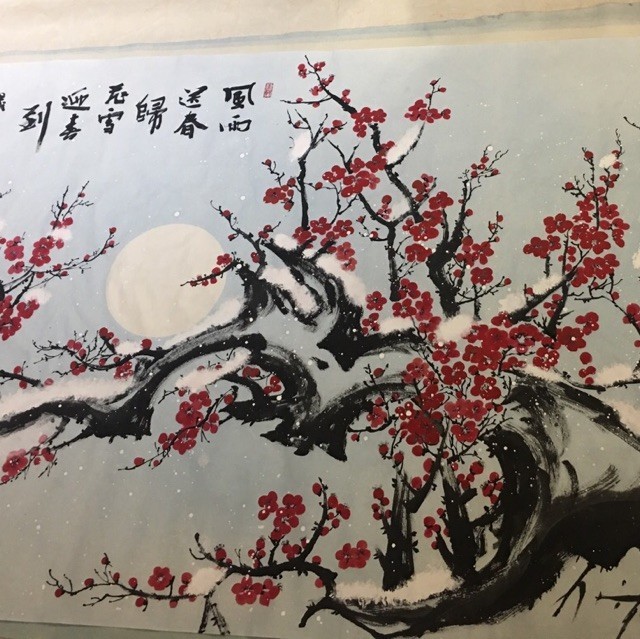 風雨
送春
歸
飛雪
迎春
到